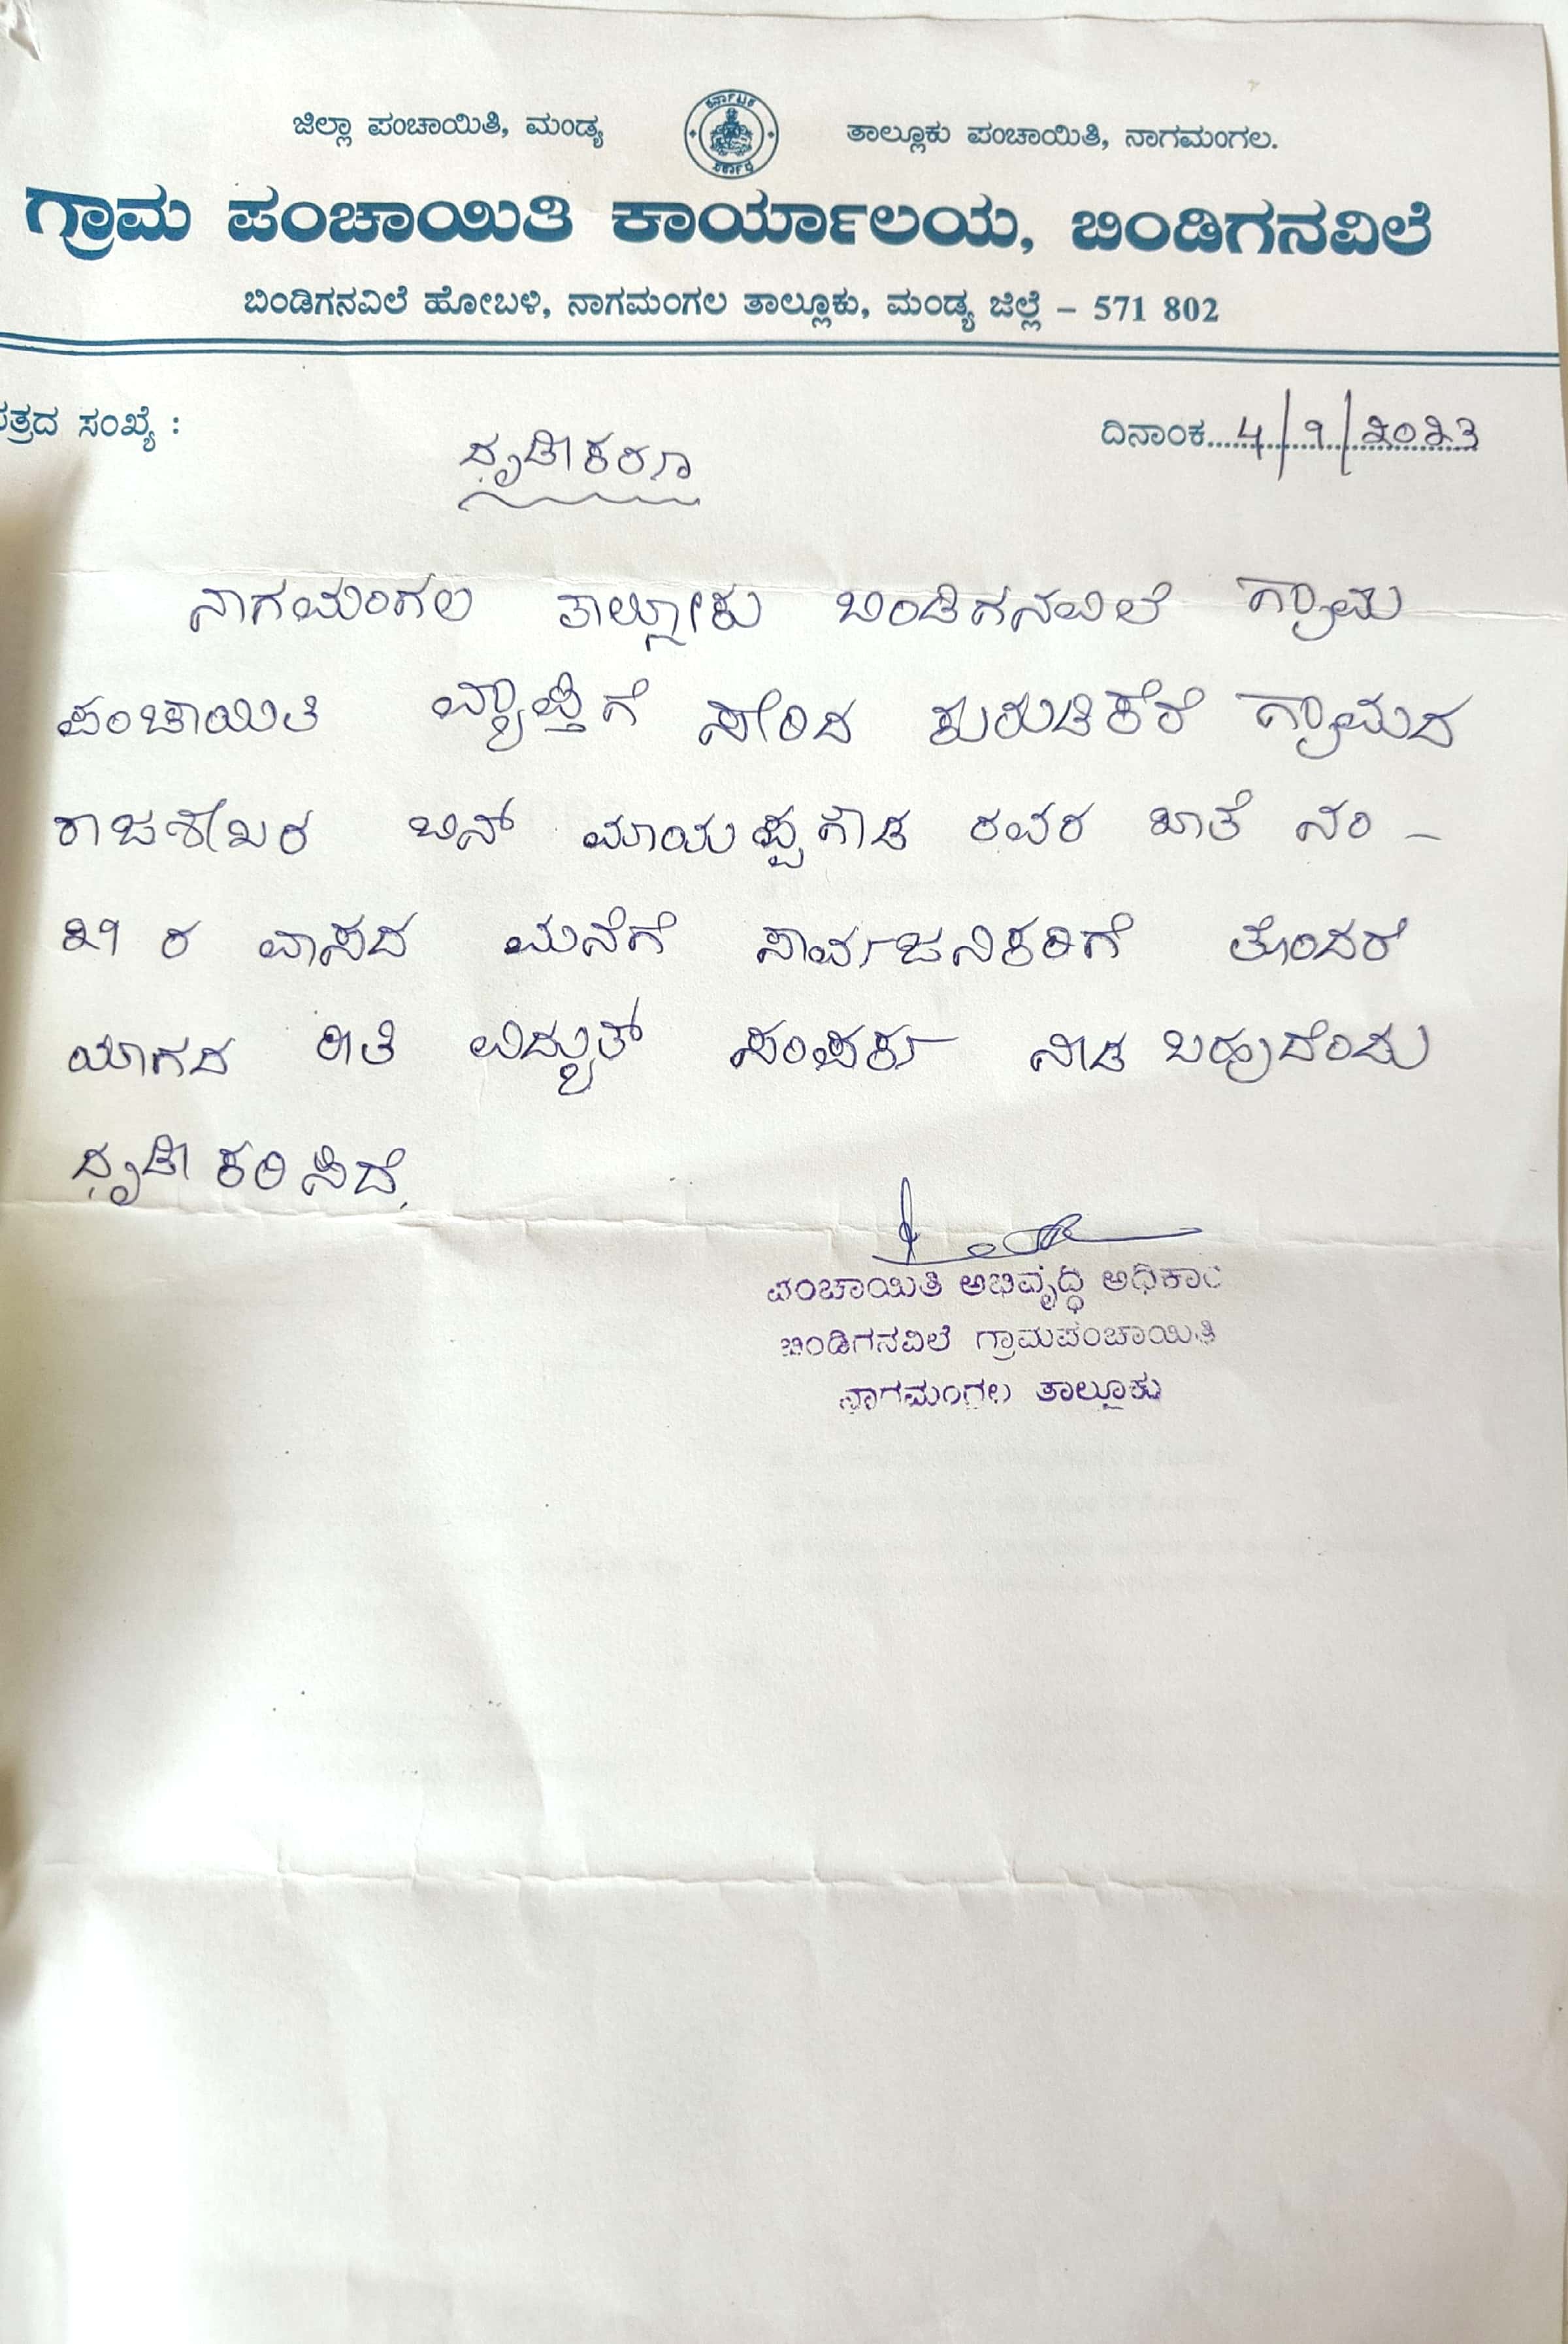 ಜಿಲ್ಲಾ ಪಂಚಾಯಿತಿ, ಮಂಡ್ಯ
ಕರ್ನಾಟಕ ಸರ್ಕಾರ
ತಾಲ್ಲೂಕು ಪಂಚಾಯಿತಿ, ನಾಗಮಂಗಲ.
ಗ್ರಾಮ ಪಂಚಾಯಿತಿ ಕಾರ್ಯಾಲಯ, ಬಿಂಡಿಗನವಿಲೆ
ಬಿಂಡಿಗನವಿಲೆ ಹೋಬಳಿ, ನಾಗಮಂಗಲ ತಾಲ್ಲೂಕು, ಮಂಡ್ಯ ಜಿಲ್ಲೆ – 571 802
ಪತ್ರದ ಸಂಖ್ಯೆ :
ದಿನಾಂಕ....೪/೧/೨೦೨೩
ಧೃಡೀಕರಣ
ನಾಗಮಂಗಲ ತಾಲ್ಲೂಕು ಬಿಂಡಿಗನವಿಲೆ ಗ್ರಾಮ
ಪಂಚಾಯಿತಿ ವ್ಯಾಪ್ತಿಗೆ ಸೇರಿದ ಕುರುಡಿಕೆರೆ ಗ್ರಾಮದ
ರಾಜಶೇಖರ ಬಿನ್ ಮಾಯಪ್ಪಗೌಡ ರವರ ಖಾತೆ ನಂ –
೨೧ ರ ವಾಸದ ಮನೆಗೆ ಸಾರ್ವಜನಿಕರಿಗೆ ತೊಂದರೆ
ಯಾಗದ ರೀತಿ ವಿದ್ಯುತ್ ಸಂಪರ್ಕ ನೀಡ ಬಹುದೆಂದು
ಧೃಡೀಕರಿಸಿದೆ.
ಪಂಚಾಯಿತಿ ಅಭಿವೃದ್ಧಿ ಅಧಿಕಾರಿ
ಬಿಂಡಿಗನವಿಲೆ ಗ್ರಾಮಪಂಚಾಯಿತಿ
ನಾಗಮಂಗಲ ತಾಲ್ಲೂಕು